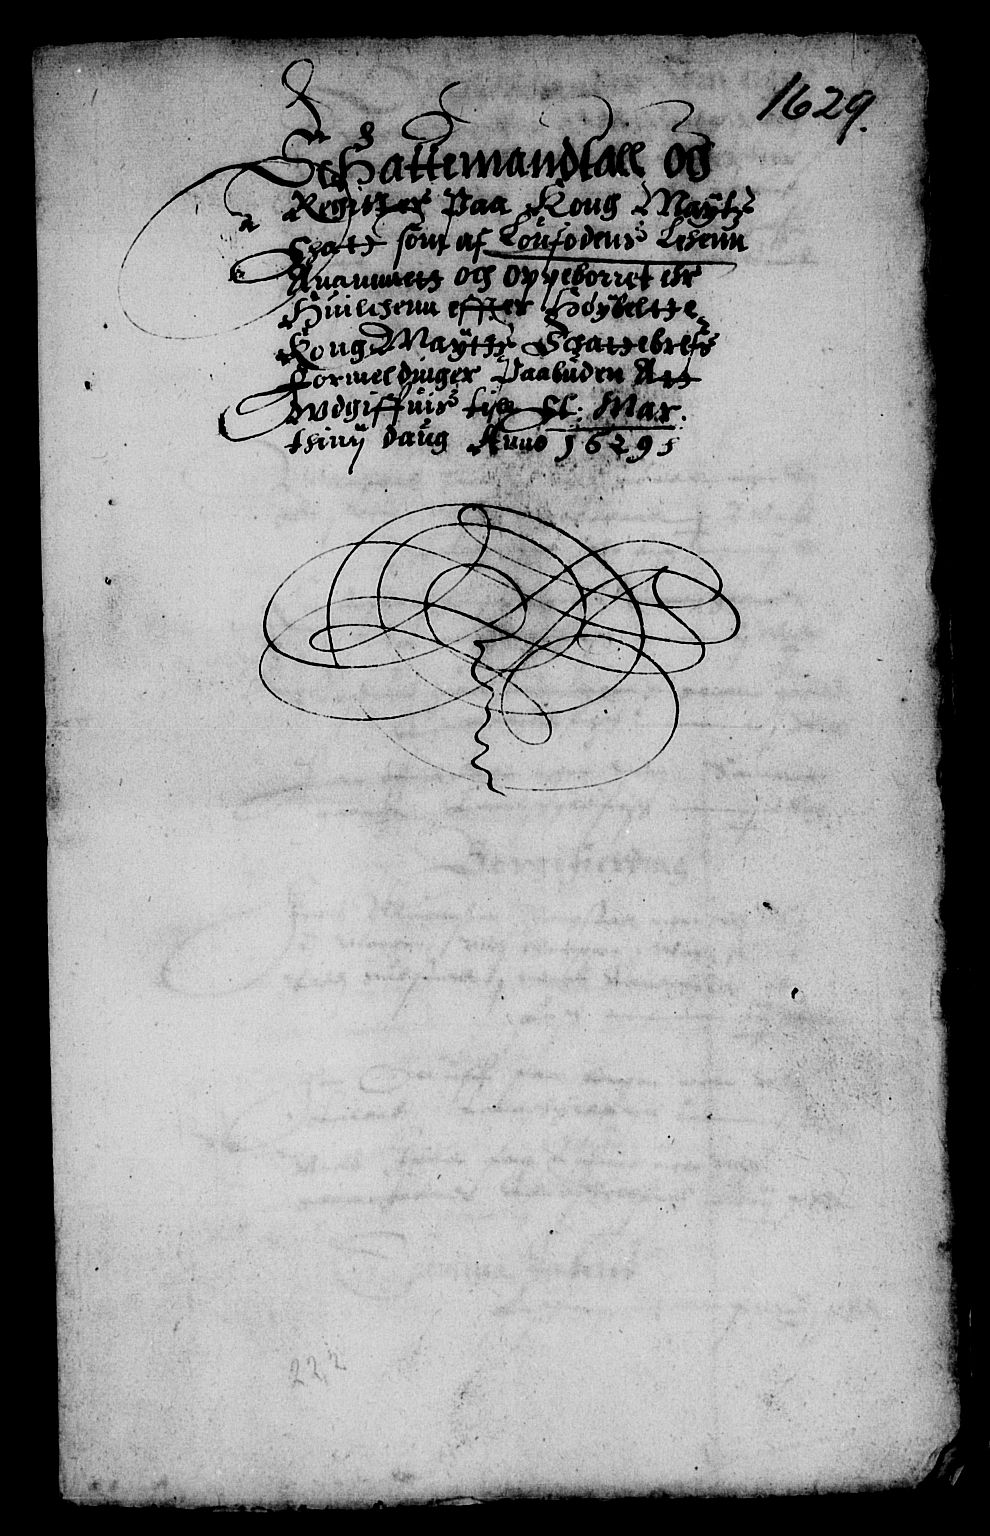 1629.
Schattemandtall og
Register Paa Kong Maÿtz
Schatt som af Loufodens Lhenn
Anammett och oppeborret ehr
Huilchenn effter Høÿbeltte
Kong Maÿttz Schattebrefs
Formeldinger Paabuden Att
Wdgiffuis till St: Mar.
thinij daug Anno 1629
222